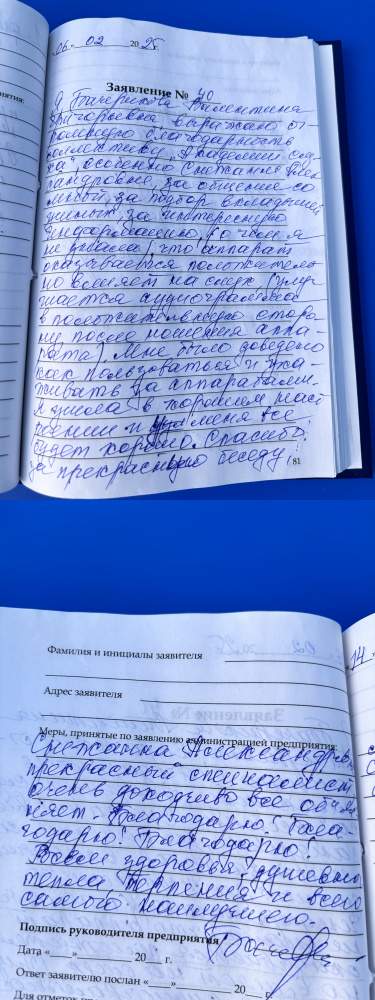 06. 02 2025г.
Заявление № 40
Я Бачерикова Валентина
Григорьевна выражаю от-
ромную благодарность
коллективу "Академии слу-
ха", особенно Снежанне Алек-
сандровне, за общение со
мной, за подбор вкладышей
ушных, за интересную
информацию, о чем я
не знала, что аппарат
оказывается положитель-
но влияет на слух (улуч-
шается аудиограмма
в положительную сторо-
ну после ношения аппа-
рата). Мне было доведено
как пользоваться и уха-
живать за аппаратами.
Я ушла в хорошем наст
роении и у меня все
будет хорошо. Спасибо!
за прекрасную беседу!
81
ятия:
Фамилия и инициалы заявителя
Адрес заявителя
Меры, принятые по заявлению администрацией предприятия:
Снежанна Александров
прекрасный специалист
очень доходчиво все объяс
няет. Благодарю! Бла-
годарю! Благодарю!
Всем здоровья, душевного
тепла, терпения и всего
самого наилучшего.
Подпись руководителя предприятия
Дата «___»________ 20__ г.
Ответ заявителю послан «___»________ 20
Для отметок
14